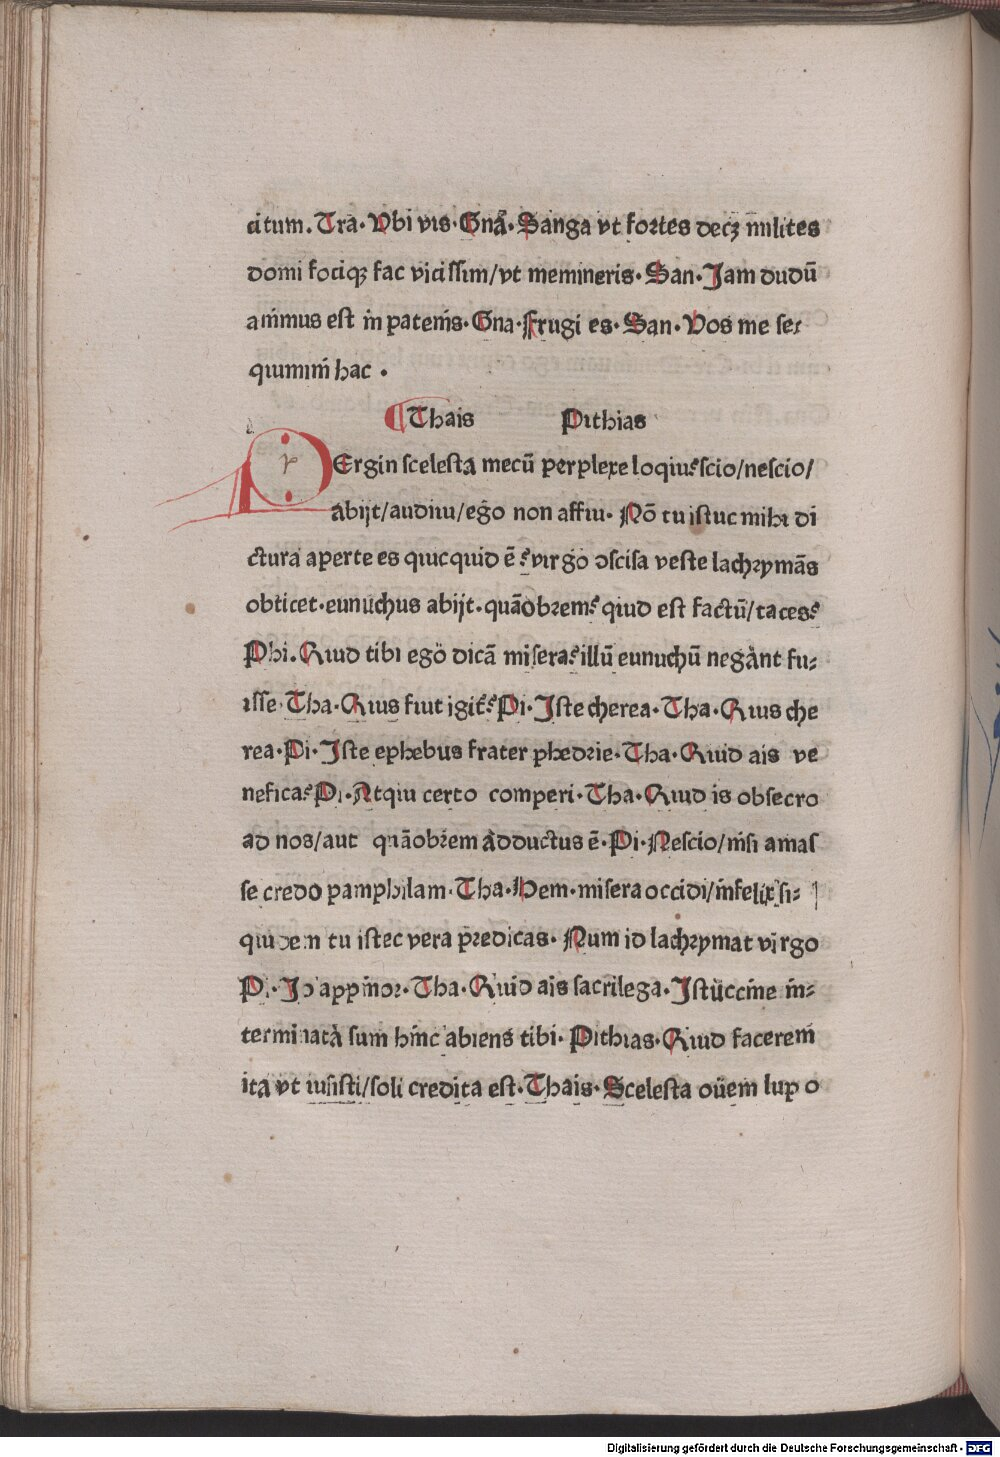 citum. Tra· Vbi vis· Gnã· Sanga vt fortes decꝫ milites
domi focique fac vicissim/vt memineris· San· Jam dudū
animus est in patenis· Gna· Frugi es· San· Vos me se⸗
quimini hac ·
¶ Thais Pithias
PErgin scelesta mecū perplexe loqui? scio/nescio/
abijt/audiui/ego non affui· Nō tu istuc mihi di
ctura aperte es quicquid ē? virgo ↄscisa veste lachrymās
obticet· eunuchus abijt· quāobrem? quid est factū/taces?
Phi· Quid tibi ego dicā misera? illū eunuchū negant fu⸗
isse· Tha· Quis fuit igit̃? Pi· Iste cherea· Tha· Quis che
rea· Pi· Iste ephebus frater phedrie· Tha· Quid ais ve
nefica? Pi· Atqui certo comperi· Tha· Quid is obsecro
ad nos/aut quāobrem adductus ē· Pi· Nescio/nisi amas
se credo pamphilam· Tha· Hem· misera occidi/infelix si⸗
quidem tu istec vera predicas· Num id lachrymat virgo
Pi· Id appinor· Tha· Quid ais sacrilega· Istuccine in⸗
terminata sum hinc abiens tibi· Pithias· Quid facerem
ita vt iusisti/soli credita est· Thais· Scelesta ouem lupo
Digitalisierung gefördert durch die Deutsche Forschungsgemeinschaft - DFG